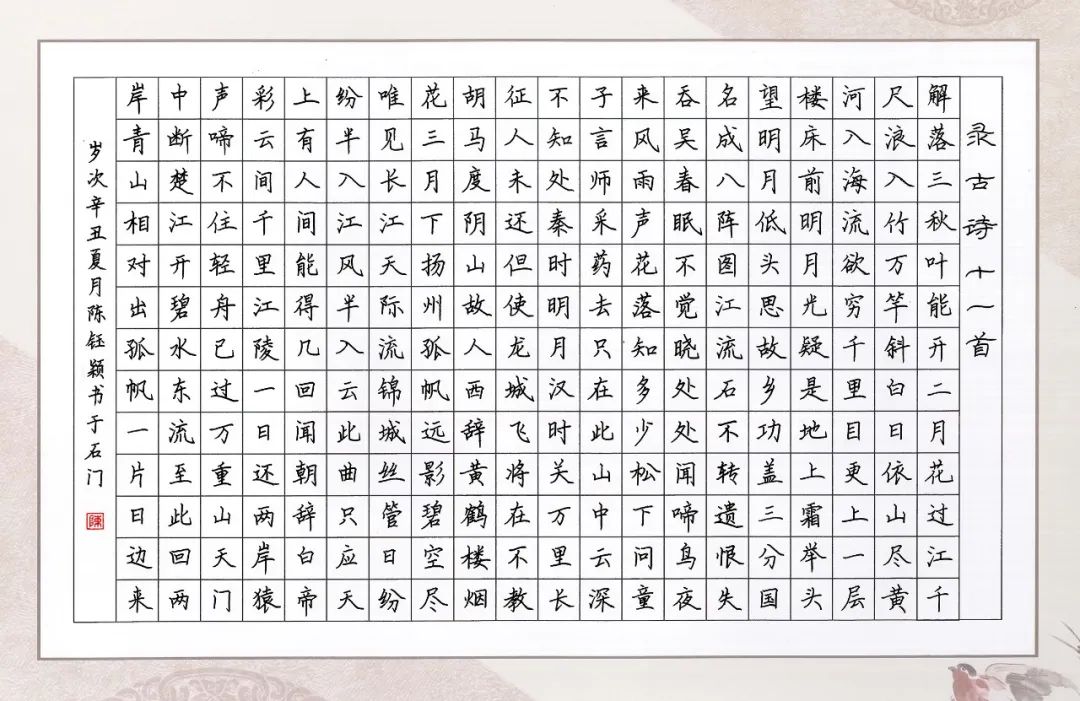 录古诗十一首
解落三秋叶能开二月花过江千
尺浪入竹万竿斜白日依山尽黄
河入海流欲穷千里目更上一层
楼床前明月光疑是地上霜举头
望明月低头思故乡功盖三分国
名成八阵图江流石不转遗恨失
吞吴春眠不觉晓处处闻啼鸟夜
来风雨声花落知多少松下问童
子言师采药去只在此山中云深
不知处秦时明月汉时关万里长
征人未还但使龙城飞将在不教
胡马度阴山故人西辞黄鹤楼烟
花三月下扬州孤帆远影碧空尽
唯见长江天际流锦城丝管日纷
纷半入江风半入云此曲只应天
上有人间能得几回闻朝辞白帝
彩云间千里江陵一日还两岸猿
声啼不住轻舟已过万重山天门
中断楚江开碧水东流至此回两
岸青山相对出孤帆一片日边来
岁次辛丑夏月陈钰颖书于石门
陳